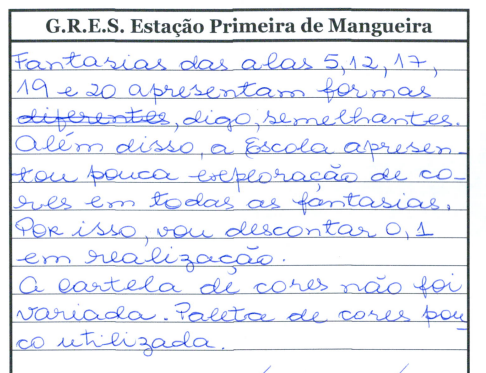 G.R.E.S. Estação Primeira de Mangueira
Fantasias das alas 5, 12, 17,
19 e 20 apresentam formas
diferentes, digo, semelhantes.
Além disso, a Escola apresen-
tou pouca exploração de co-
res em todas as fantasias.
Por isso, vou descontar 0,1
em realização.
A cartela de cores não foi
variada. Paleta de cores pou
co utilizada.